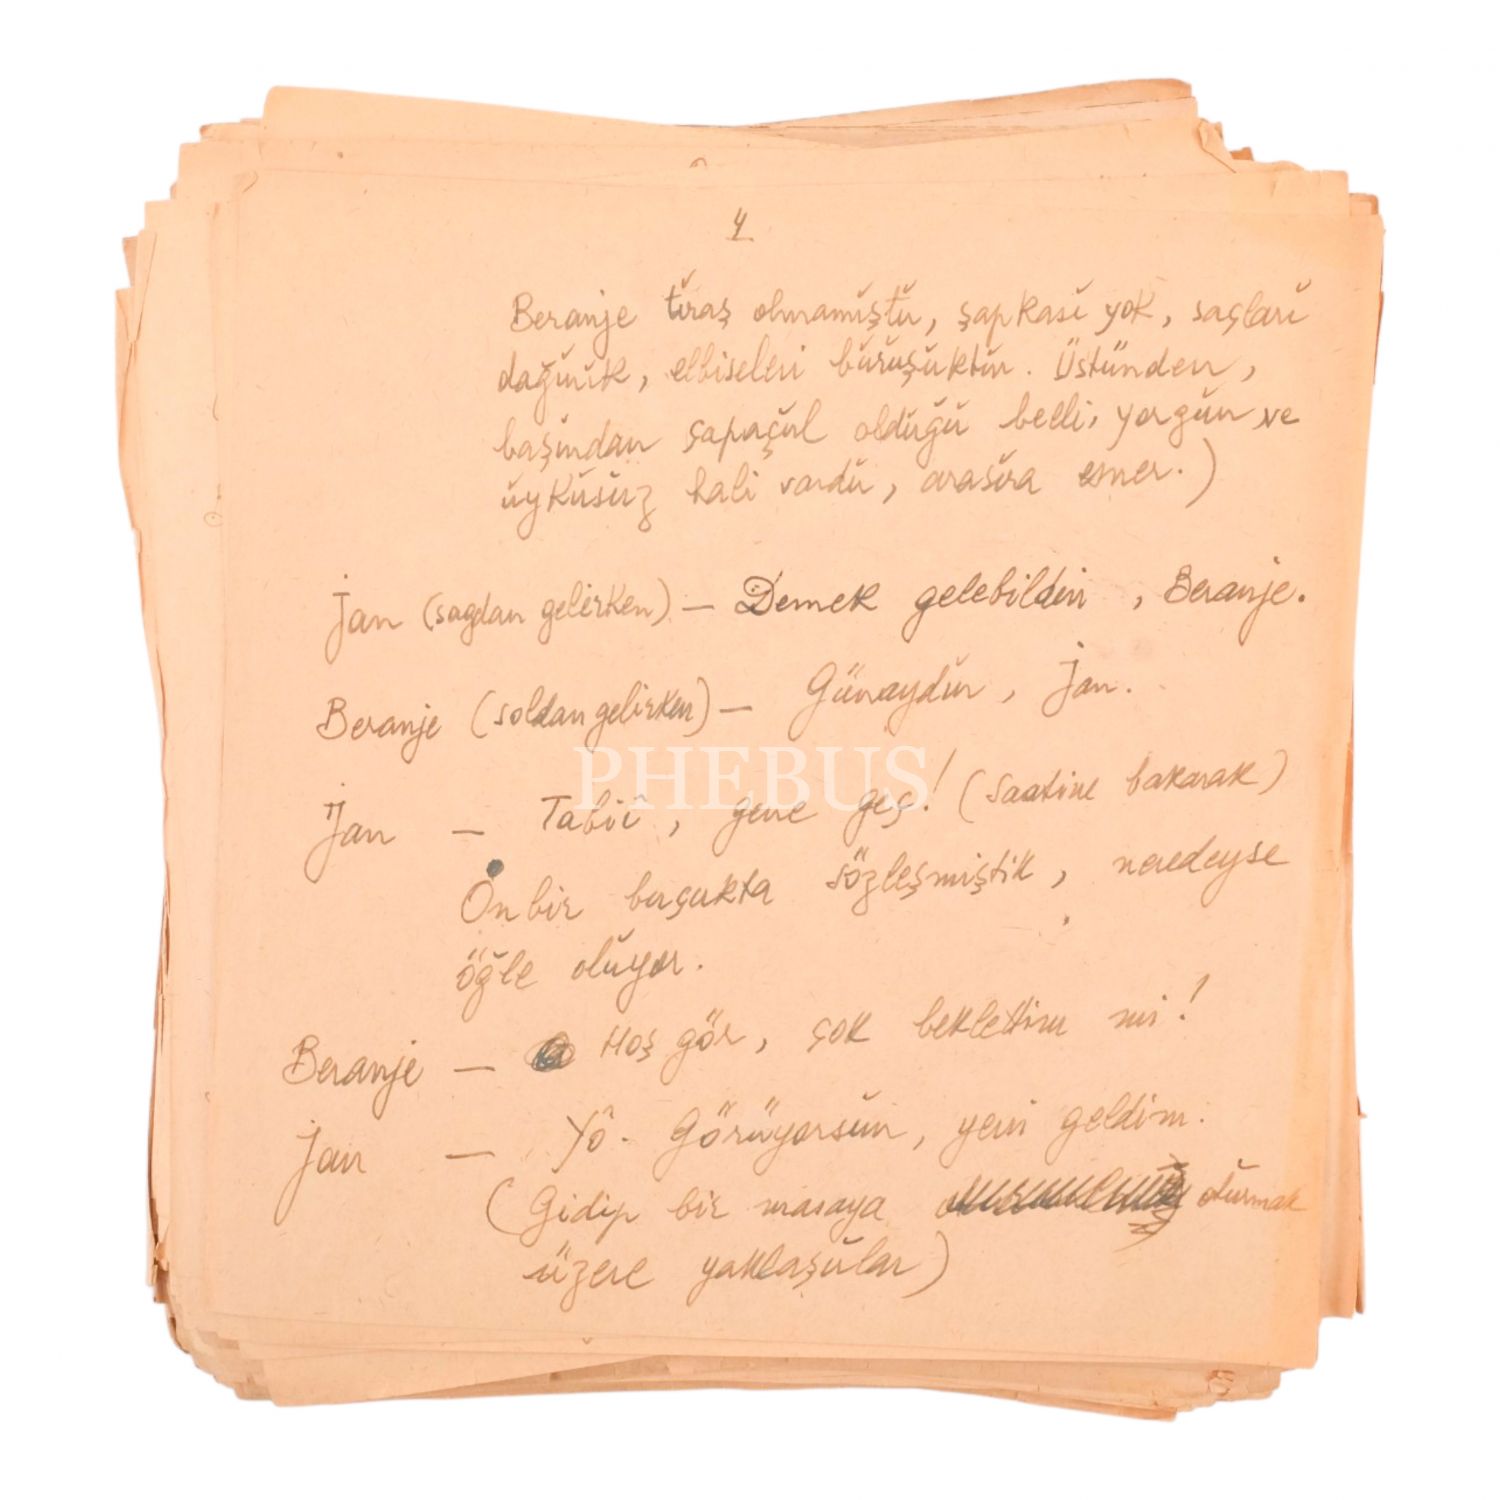 4
Beranje tıraş olmamıştır, şapkası yok, saçları
dağınık, elbiseleri buruşuktur. Üstünden,
başından şapaçul olduğu belli, yorgun ve
uykusuz hali vardır, arasıra esner.)
Jan (sağdan gelirken) — Demek gelebildin, Beranje.
Beranje (soldan gelirken) — Günaydın, Jan.
PHEBUS
Jan — Tabiî, gene geç! (saatine bakarak)
On bir buçukta sözleşmiştik, neredeyse
öğle oluyor.
Beranje — Hoş gör, çok beklettim mi!
Jan — Yô. Görüyorsun, yeni geldim.
(Gidip bir masaya oturmak
üzere yaklaşırlar)